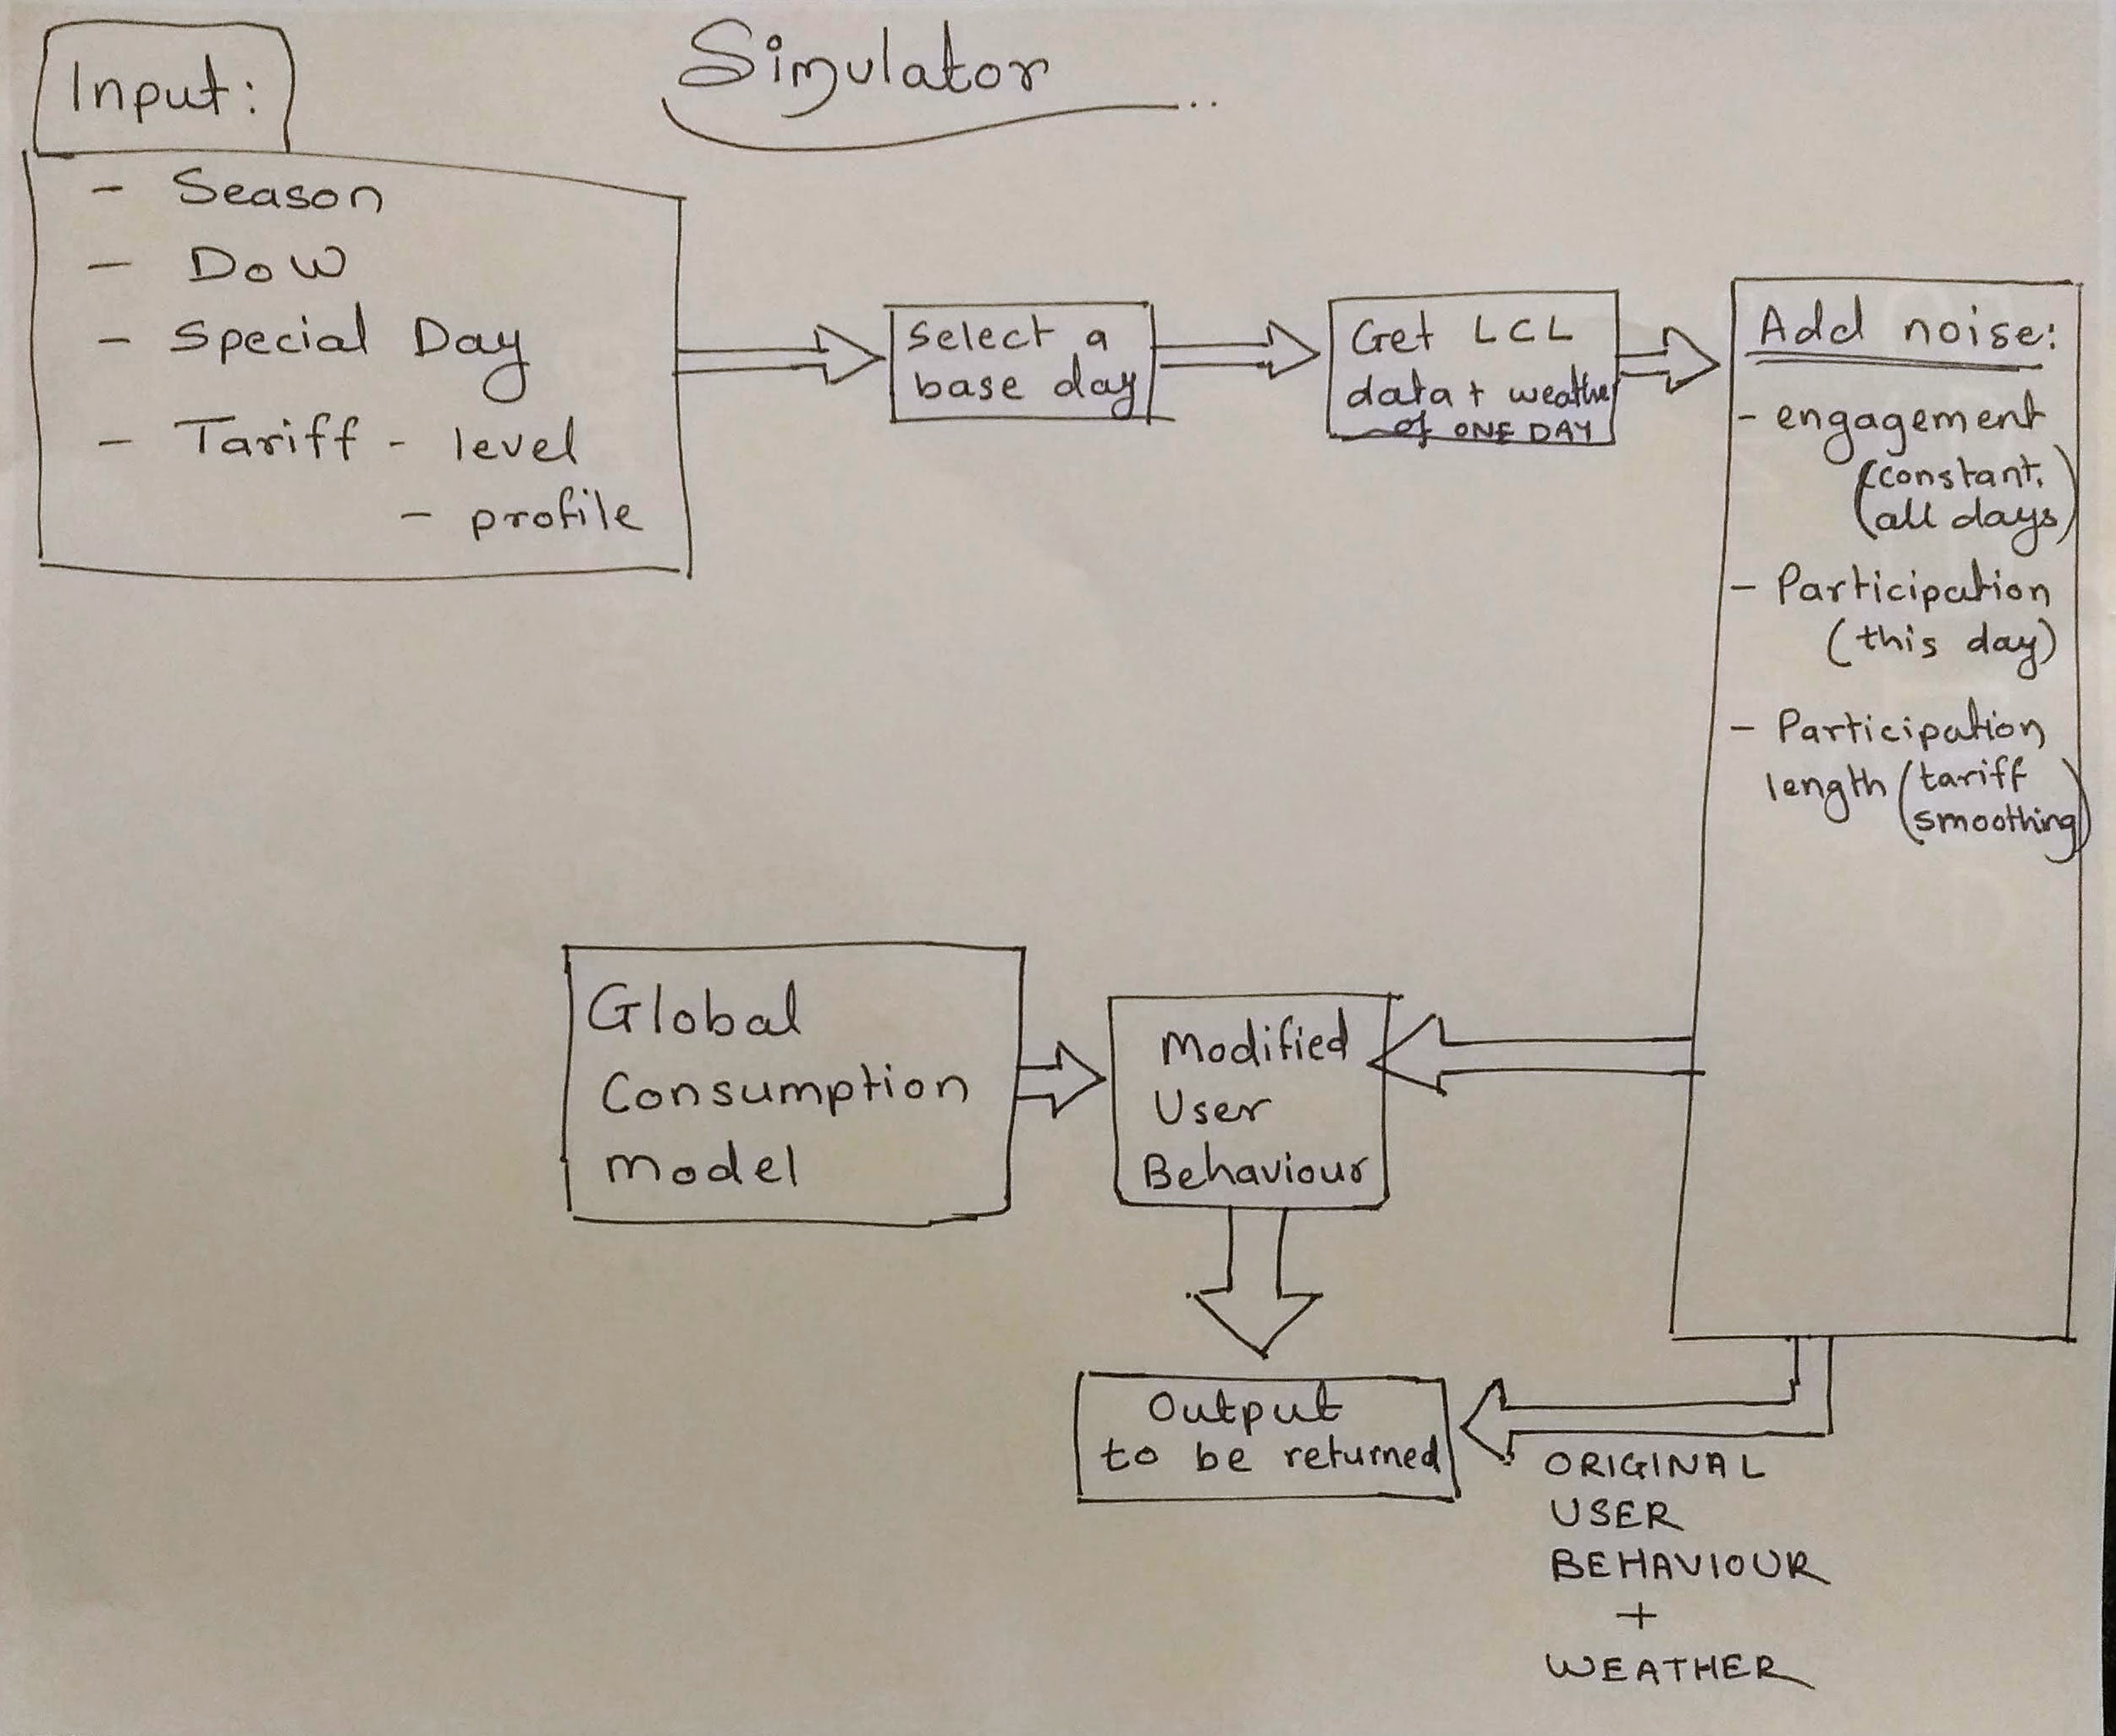 Simulator
Input:
- Season
- DoW
- Special Day
- Tariff - level
- profile
Select a
base day
Get LCL
data + weather
of ONE DAY
Add noise:
- engagement
(constant,
all days)
- Participation
(this day)
- Participation
length (tariff
smoothing)
Global
Consumption
Model
Modified
User
Behaviour
Output
to be returned
ORIGINAL
USER
BEHAVIOUR
+
WEATHER